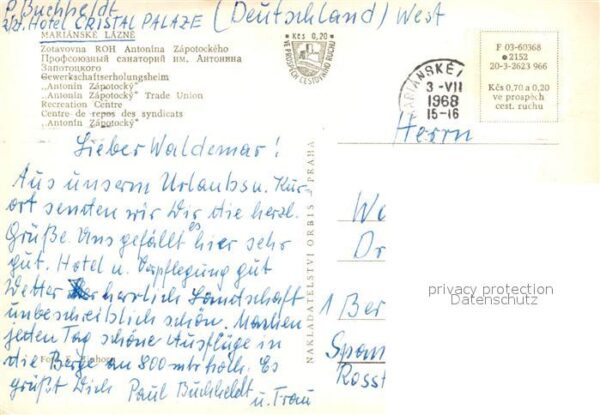 P. Buchheldt
z/Zt. Hotel CRISTAL PALAZE (Deutschland) West
MARIÁNSKÉ LÁZNĚ
Zotavovna ROH Antonína Zápotockého
Профсоюзный санаторий им. Антонина
Запотоцкого
Gewerkschaftserholungsheim
„Antonín Zápotocký"
„Antonín Zápotocký" Trade Union
Recreation Centre
Centre de repos des syndicats
„Antonín Zápotocký"
* Kčs 0,20 *
VE PROSPĚCH CESTOVNÍHO RUCHU
MARIÁNSKÉ
3.-VII
1968
15-16
F 03-60368
2152
20-3-2623 966
Kčs 0,70 a 0,20
ve prospěch
cest. ruchu
Herrn
Lieber Waldemar!
Aus unserm Urlaubs u. Kur-
ort senden wir Dir die herzl.
Grüße. Uns gefällt es hier sehr
gut. Hotel u. Verpflegung gut
Wetter herrlich Landschaft
unbeschreiblich schön. Machen
jeden Tag schöne Ausflüge in
die Berge an 800 mtr hoch. Es
grüßt Dich Paul Buchheldt
u. Frau
NAKLADATELSTVÍ ORBIS PRAHA
We
Dr
1 Ber
Span
Rosst
privacy protection
Datenschutz